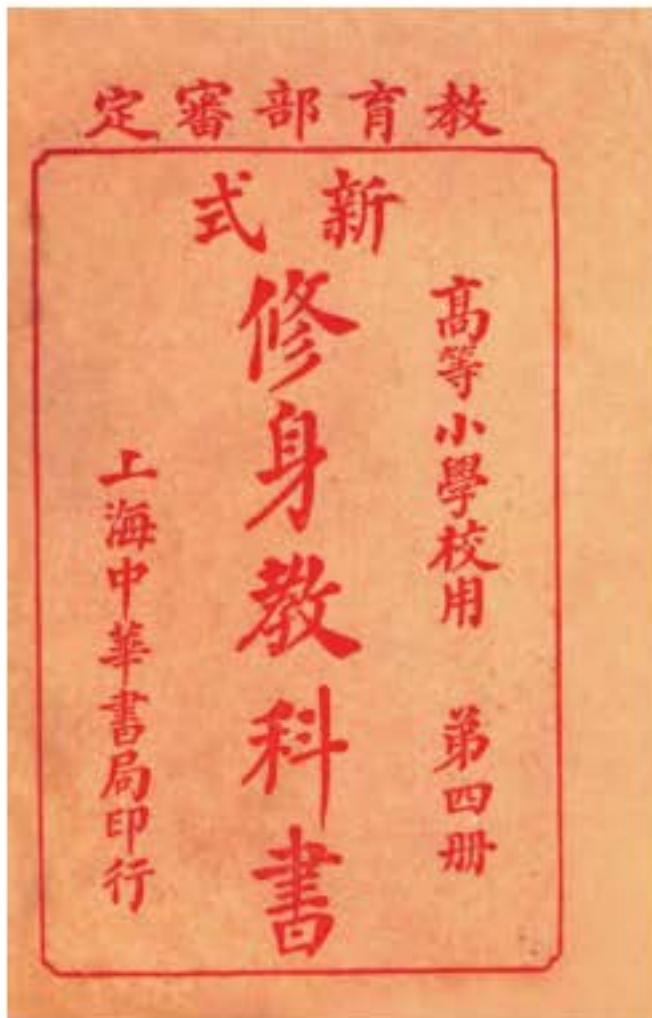 教育部審定
新式
高等小學校用 第四册
修身教科書
上海中華書局印行